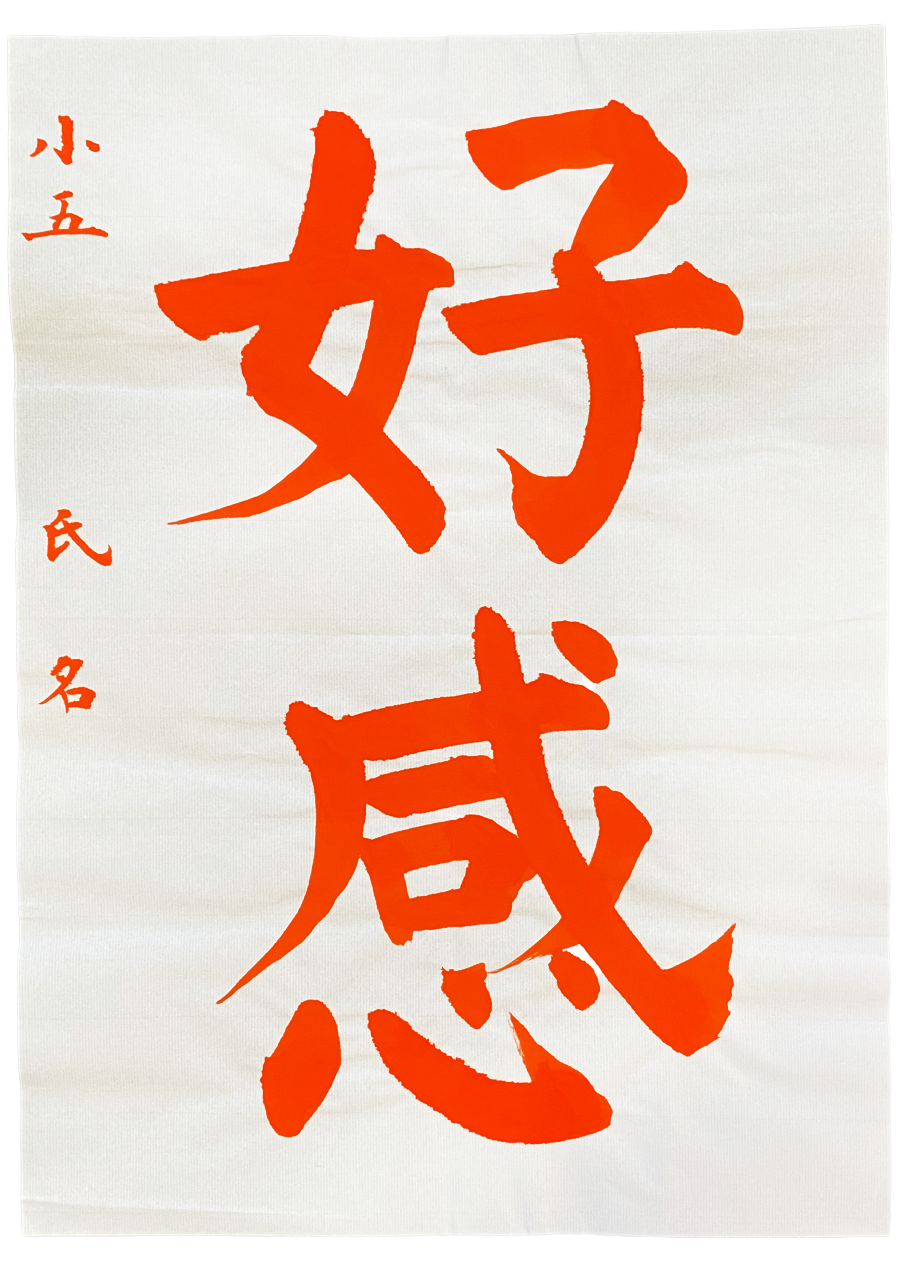 好感
小五 氏名